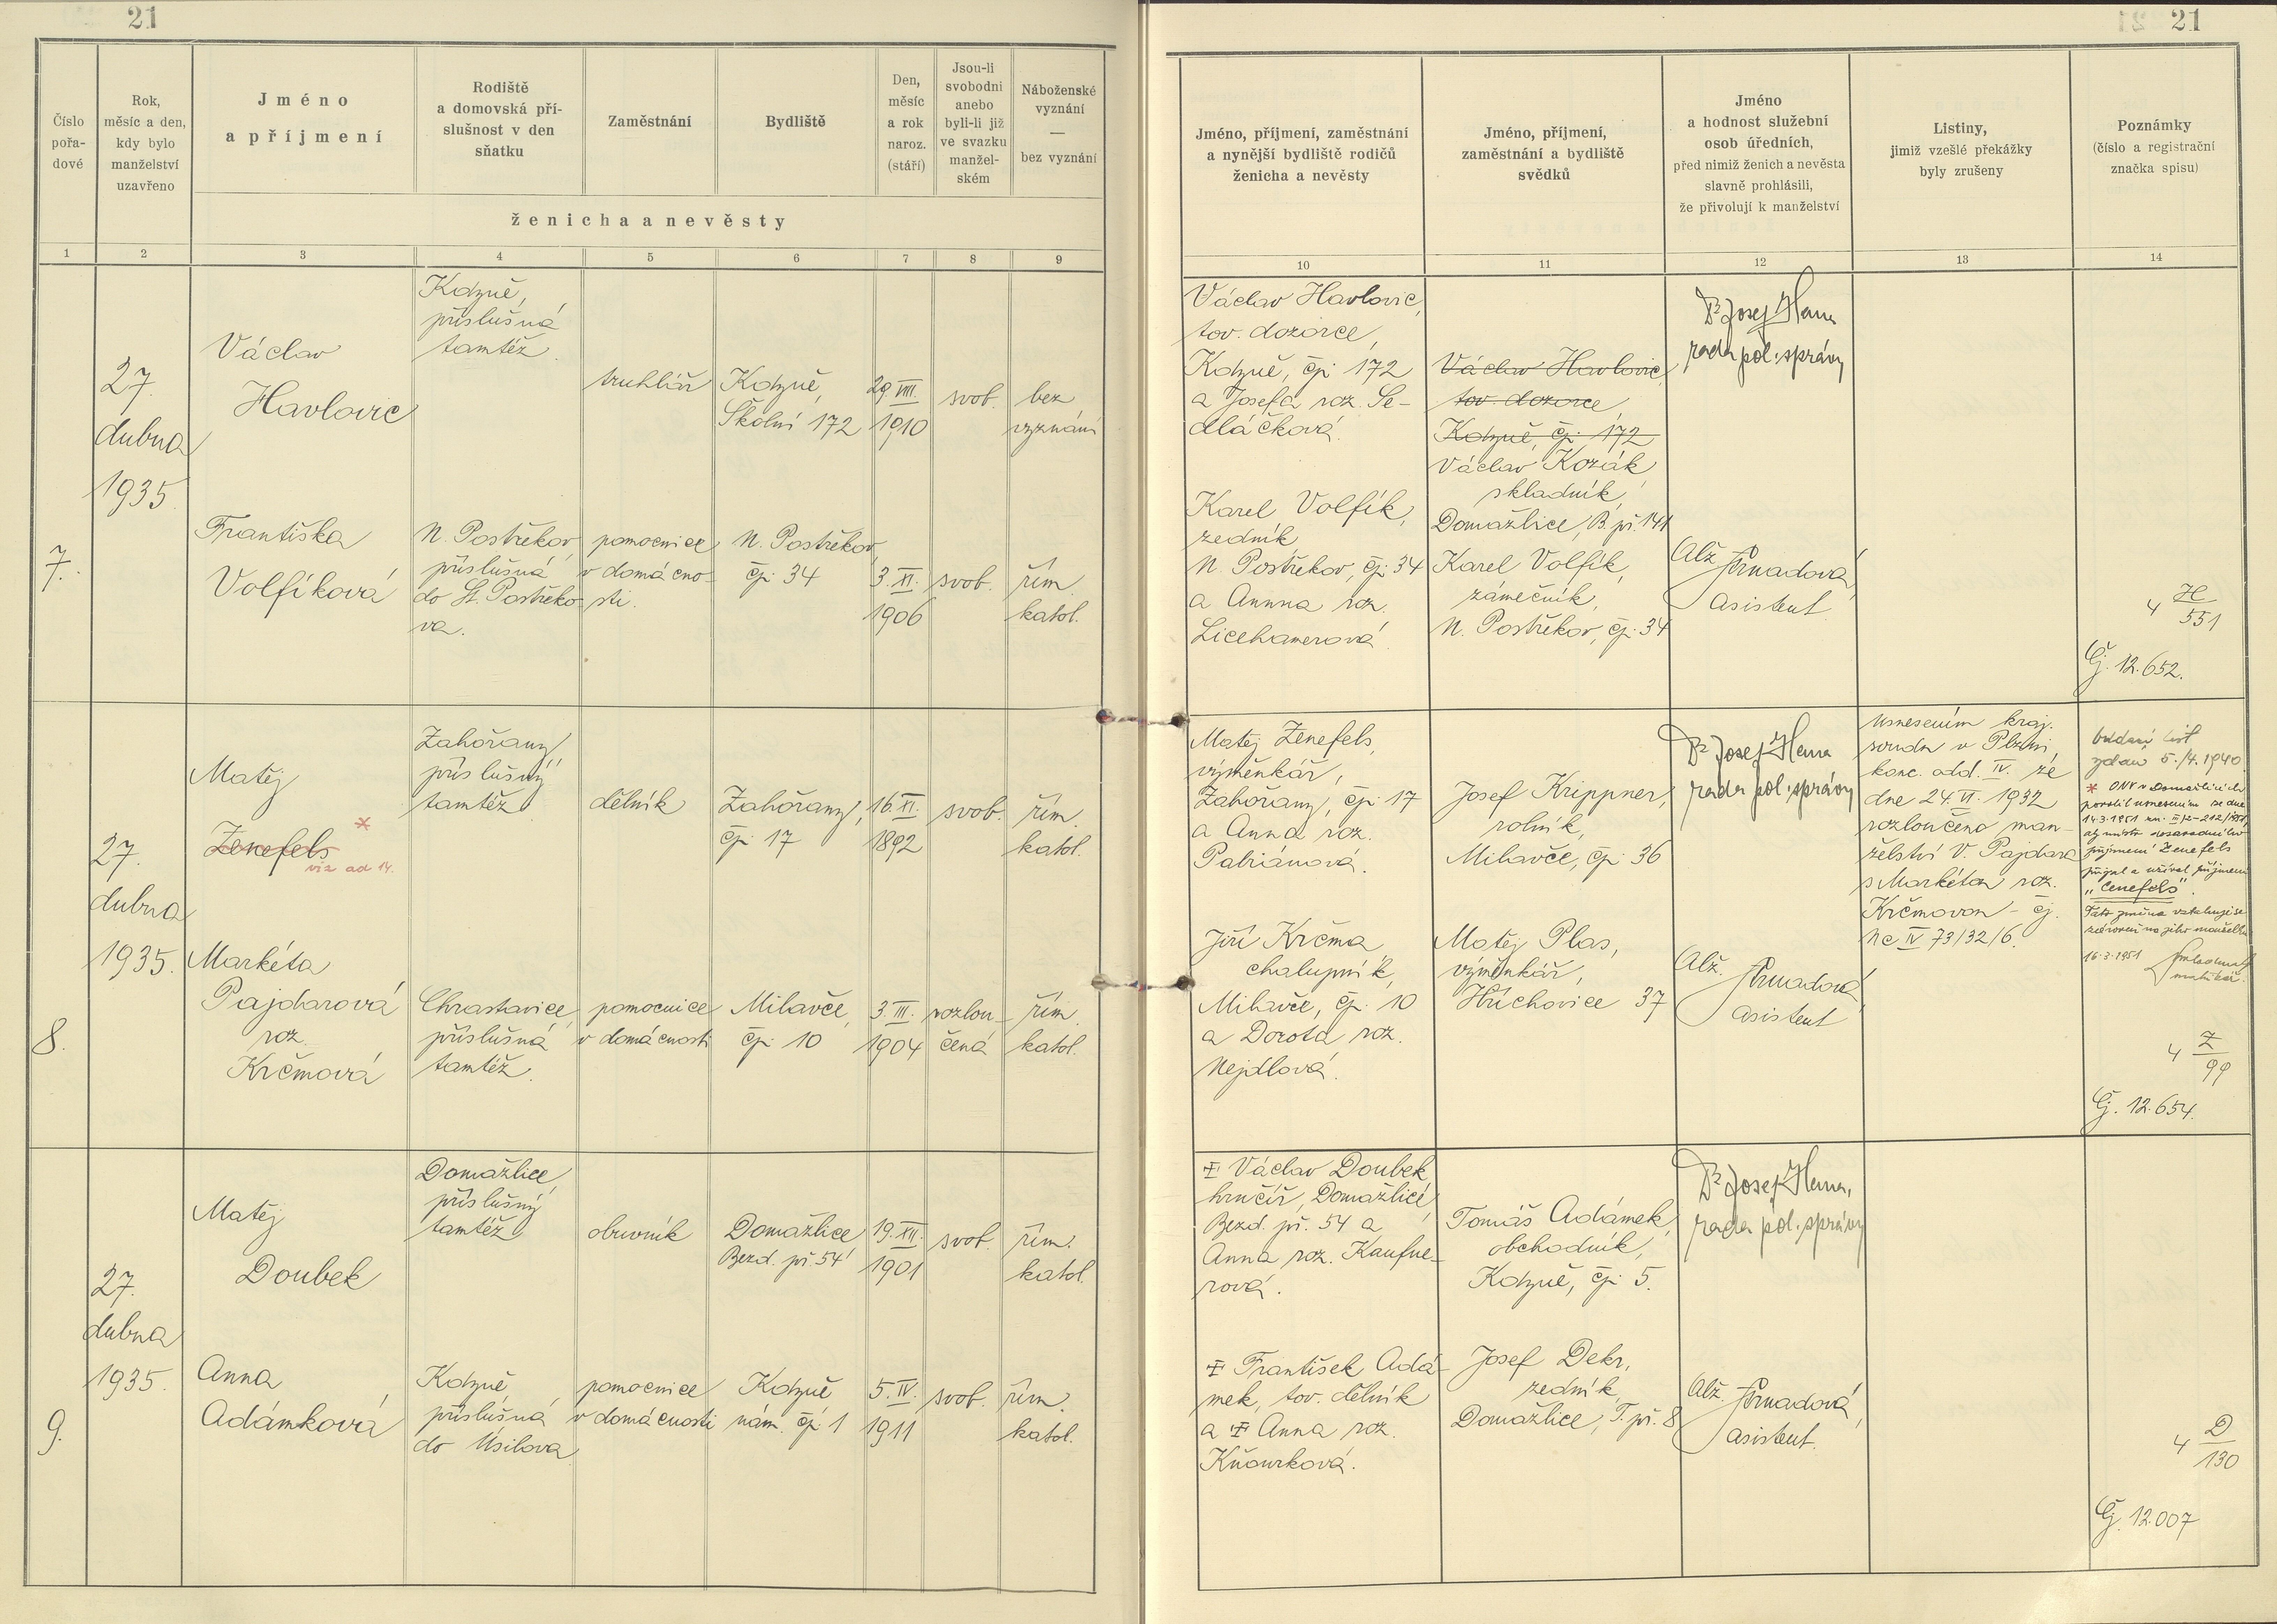 21
21
Číslo
pořa-
dové
Rok,
měsíc a den,
kdy bylo
manželství
uzavřeno
Jméno
a příjmení
Rodiště
a domovská pří-
slušnost v den
sňatku
Zaměstnání
Bydliště
Den,
měsíc
a rok
naroz.
(stáří)
Jsou-li
svobodni
anebo
byli-li již
ve svazku
manžel-
ském
Náboženské
vyznání
—
bez vyznání
ženicha a nevěsty
Jméno, příjmení, zaměstnání
a nynější bydliště rodičů
ženicha a nevěsty
Jméno, příjmení,
zaměstnání a bydliště
svědků
Jméno
a hodnost služební
osob úředních,
před nimiž ženich a nevěsta
slavně prohlásili,
že přivolují k manželství
Listiny,
jimiž vzešlé překážky
byly zrušeny
Poznámky
(číslo a registrační
značka spisu)
1 2 3 4 5 6 7 8 9 10 11 12 13 14
7.
27.
dubna
1935
Václav
Havlovic
Kdyně,
příslušná
tamtéž.
truhlář
Kdyně,
Školní 172
29. VIII.
1910
svob.
bez
vyznání
Františka
Volfíková
N. Postřekov
příslušná
do St. Postřeko-
va.
pomocnice
v domácno-
sti.
N. Postřekov,
čp. 34
3. XI.
1906
svob.
řím.
katol.
Václav Havlovic,
tov. dozorce,
Kdyně, čp. 172
a Josefa roz. Se-
dláčková.
Karel Volfík,
zedník
N. Postřekov, čp. 34
a Annna roz.
Licehamerová.
Václav Havlovic,
tov. dozorce,
Kdyně, čp. 172
Václav Kozák
skladník,
Domažlice, B. př. 141
Karel Volfík,
zámečník,
N. Postřekov, čp. 34
Dr Josef Hana
rada pol. správy
Alž.
asistent
4 H/551
Čj. 12.652.
8.
27.
dubna
1935.
Matěj
Zenefels *
viz ad 14.
Zahořany,
příslušný
tamtéž
dělník
Zahořany,
čp. 17
16. XI.
1892
svob.
řím.
katol.
Markéta
Pajdarová
roz.
Krčmová
Chrastavice,
příslušná
tamtéž.
pomocnice
v domácnosti
Milavče,
čp. 10
3. III.
1904
rozlou-
čená
řím.
katol.
Matěj Zenefels,
výměnkář,
Zahořany, čp. 17
a Anna roz.
Jiří Krčma
chalupník,
Milavče, čp. 10
a Dorota roz.
Nejdlová.
Josef Krippner,
rolník,
Milavče, čp. 36
Matěj Plas,
výměnkář,
Hříchovice 37
Dr Josef Hana
rada pol. správy
Alž.
asistent
Usnesením kraj.
soudu v Plzni,
konc. odd. IV. ze
dne 24. VI. 1932
rozloučeno man-
želství V. Pajdara
s Markétou roz.
Krčmovou - čj.
Nc IV 73/32/6.
Oddací list
vydán 5./4. 1940.
* ONV v Domažlicích
povolil usnesením ze dne
14.3.1951
aby místo dosavadního
příjmení Zenefels
přijal a užíval příjmení
„Cenefels".
Tato změna vztahuje se
zároveň na jeho manželku
16.3.1951
matrikář.
4 Z/99
Čj. 12.654.
9.
27.
dubna
1935.
Matěj
Doubek
Domažlice,
příslušný
tamtéž
obuvník
Domažlice
Bezd. př. 54
19. XII.
1901
svob.
řím.
katol.
Anna
Adámková
Kdyně,
příslušná
do Úsilova
pomocnice
v domácnosti
Kdyně,
nám. čp. 1
5. IV.
1911
svob.
řím.
katol.
Václav Doubek
hrnčíř, Domažlice,
Bezd. př. 54 a
Anna roz. Kaufne-
rová.
František Adá-
mek, tov. dělník
a Anna roz.
Kňourková.
Tomáš Adámek,
obchodník,
Kdyně, čp. 5.
Josef Dekr,
zedník
Domažlice, T. př. 8
Dr Josef Hana,
rada pol. správy
Alž.
asistent.
4 D/130
Čj. 12.007